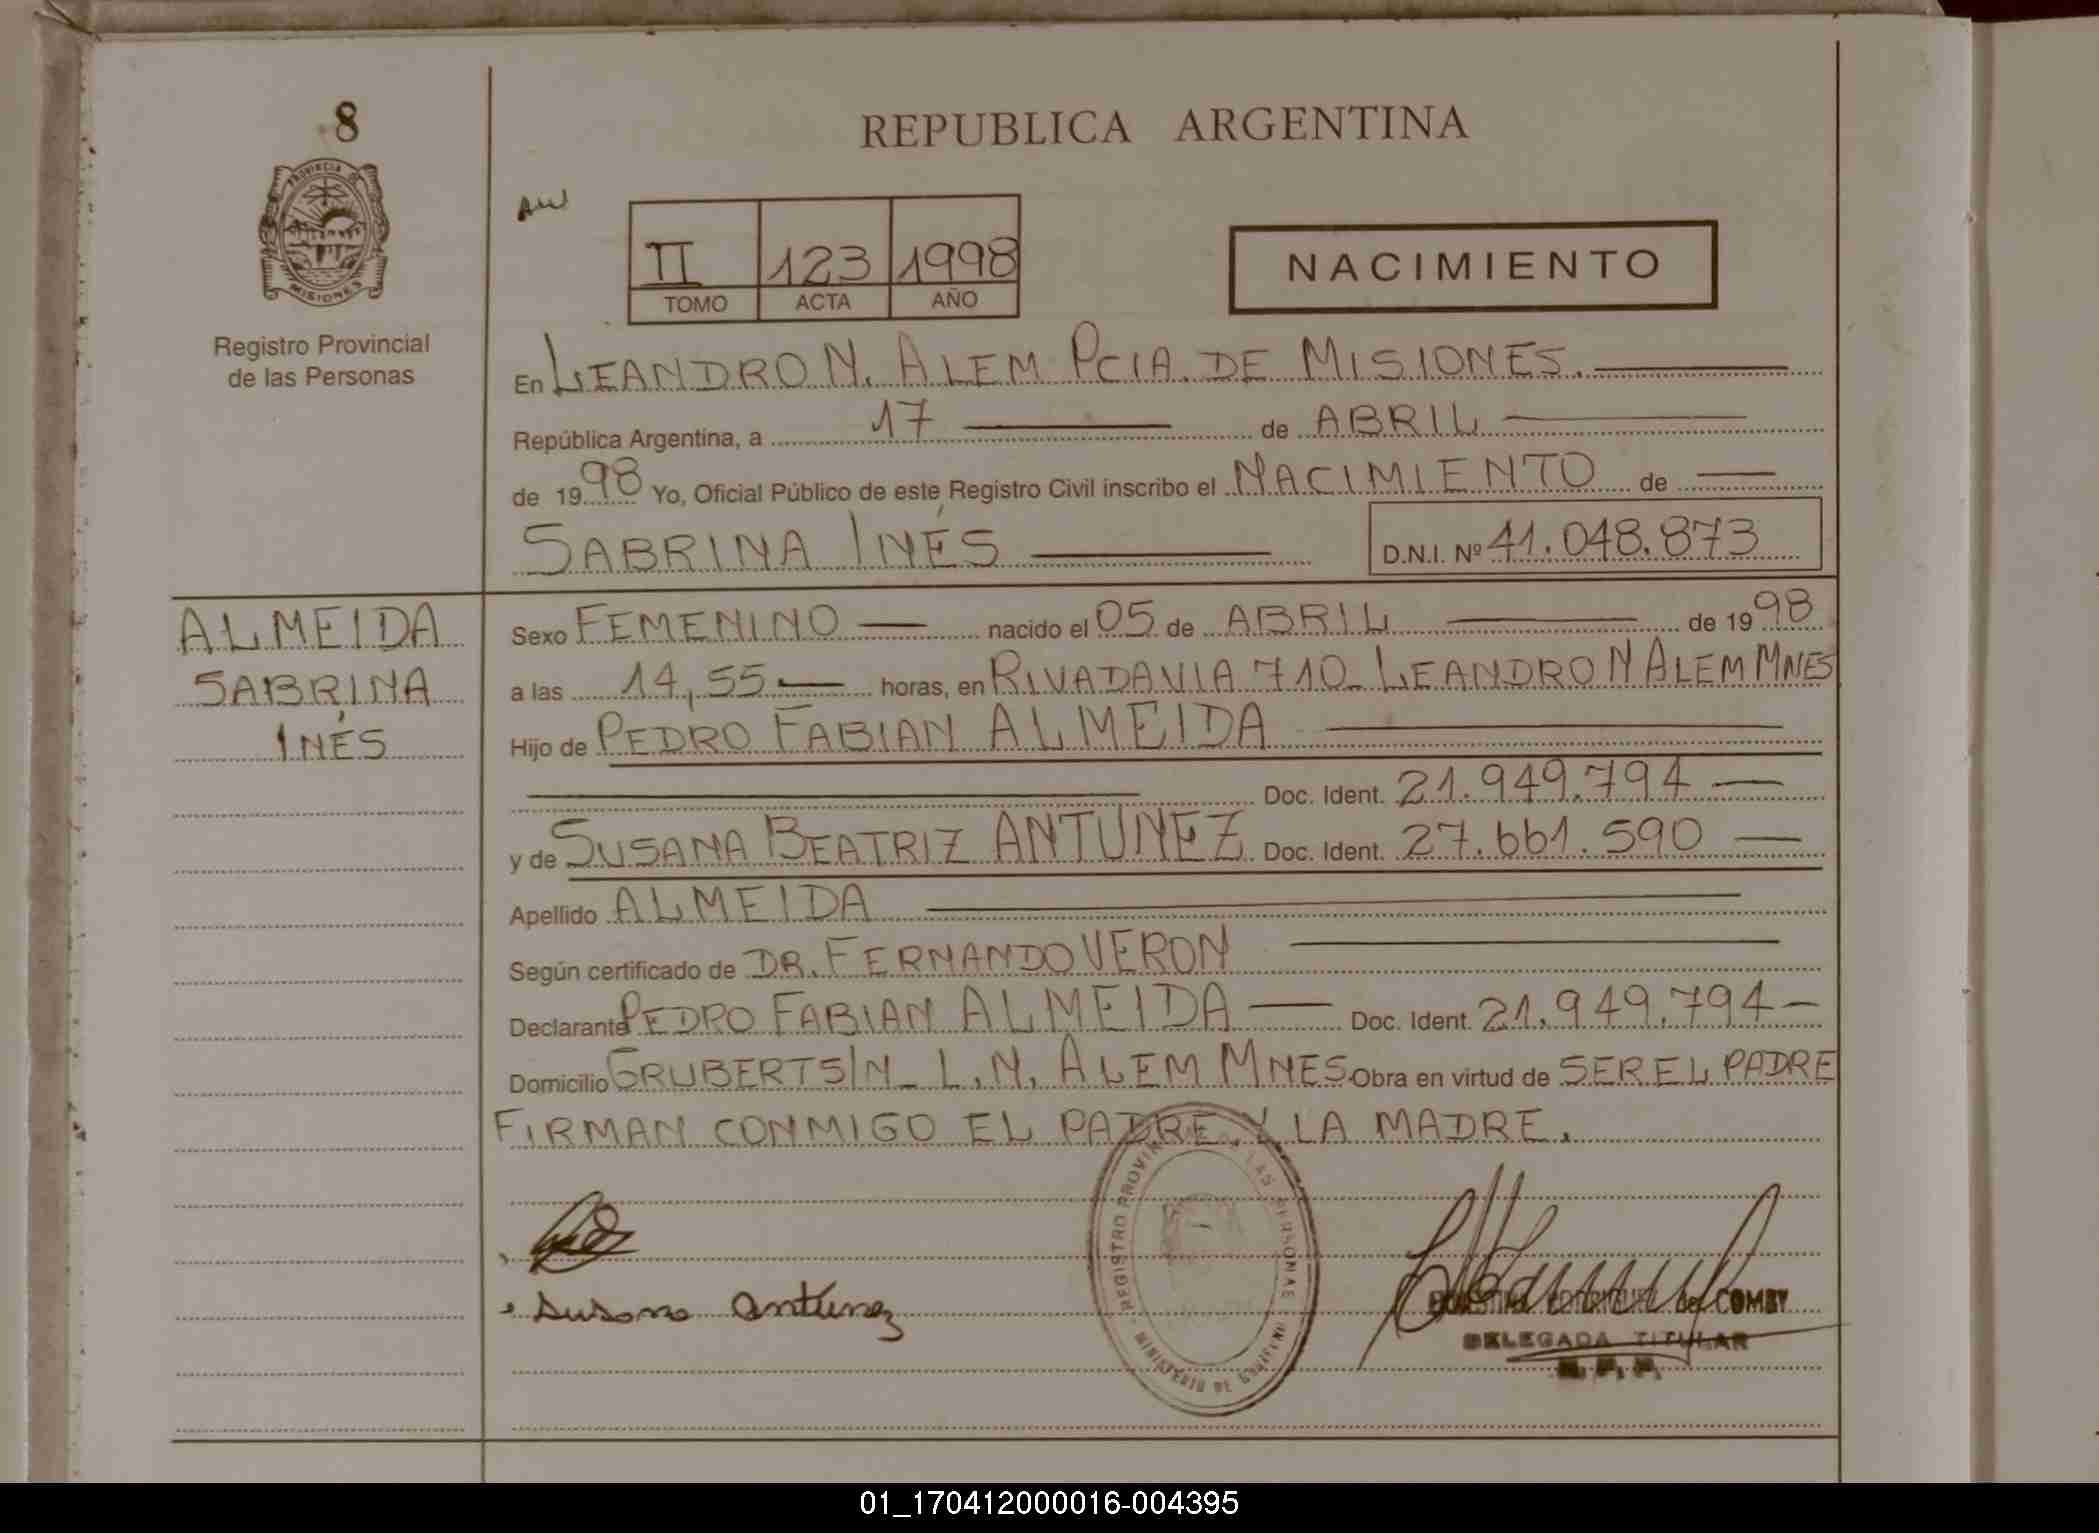 8
REPUBLICA ARGENTINA
PROVINCIA DE
MISIONES
Registro Provincial
de las Personas
II 123 1998
TOMO ACTA AÑO
NACIMIENTO
En LEANDRO N. ALEM PCIA. DE MISIONES.
República Argentina, a 17 de ABRIL
de 1998 Yo, Oficial Público de este Registro Civil inscribo el NACIMIENTO de
SABRINA INÉS D.N.I. Nº 41.048.873
ALMEIDA
SABRINA
INÉS
Sexo FEMENINO nacido el 05 de ABRIL de 1998
a las 14,55 horas, en RIVADAVIA 710_ LEANDRO N ALEM MNES
Hijo de PEDRO FABIAN ALMEIDA
Doc. Ident. 21.949.794
y de SUSANA BEATRIZ ANTUNEZ Doc. Ident. 27.661.590
Apellido ALMEIDA
Según certificado de DR. FERNANDO VERON
Declarante PEDRO FABIAN ALMEIDA Doc. Ident. 21.949.794
Domicilio GRUBERT S/N_ L.N. ALEM MNES Obra en virtud de SER EL PADRE
FIRMAN CONMIGO EL PADRE Y LA MADRE.
Susana Antunez
REGISTRO PROVINCIAL DE LAS PERSONAS
MINISTERIO DE GOBIERNO
de COMBY
DELEGADA TITULAR
01_170412000016-004395